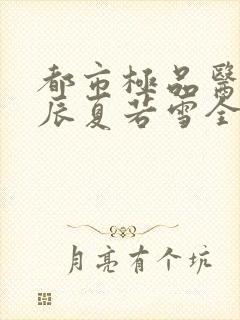 都市極品醫
辰夏若雪全
月亮有个坑